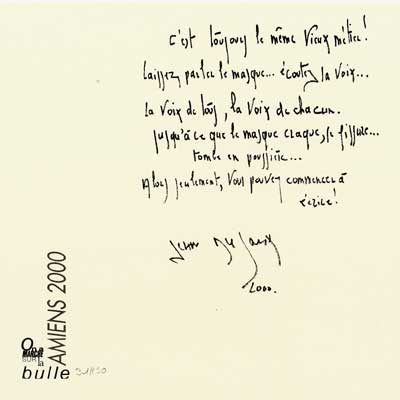 C'est toujours le même vieux métier!
Laissez parler le masque... écoutez la voix...
La voix de tous, la voix de chacun.
Jusqu'à ce que le masque craque, se fissure...
tombe en poussière...
Alors seulement, vous pouvez commencer à
écrire!
Jean Dufaux
2000.
AMIENS 2000
On a
MARCHÉ
SUR
la
bulle